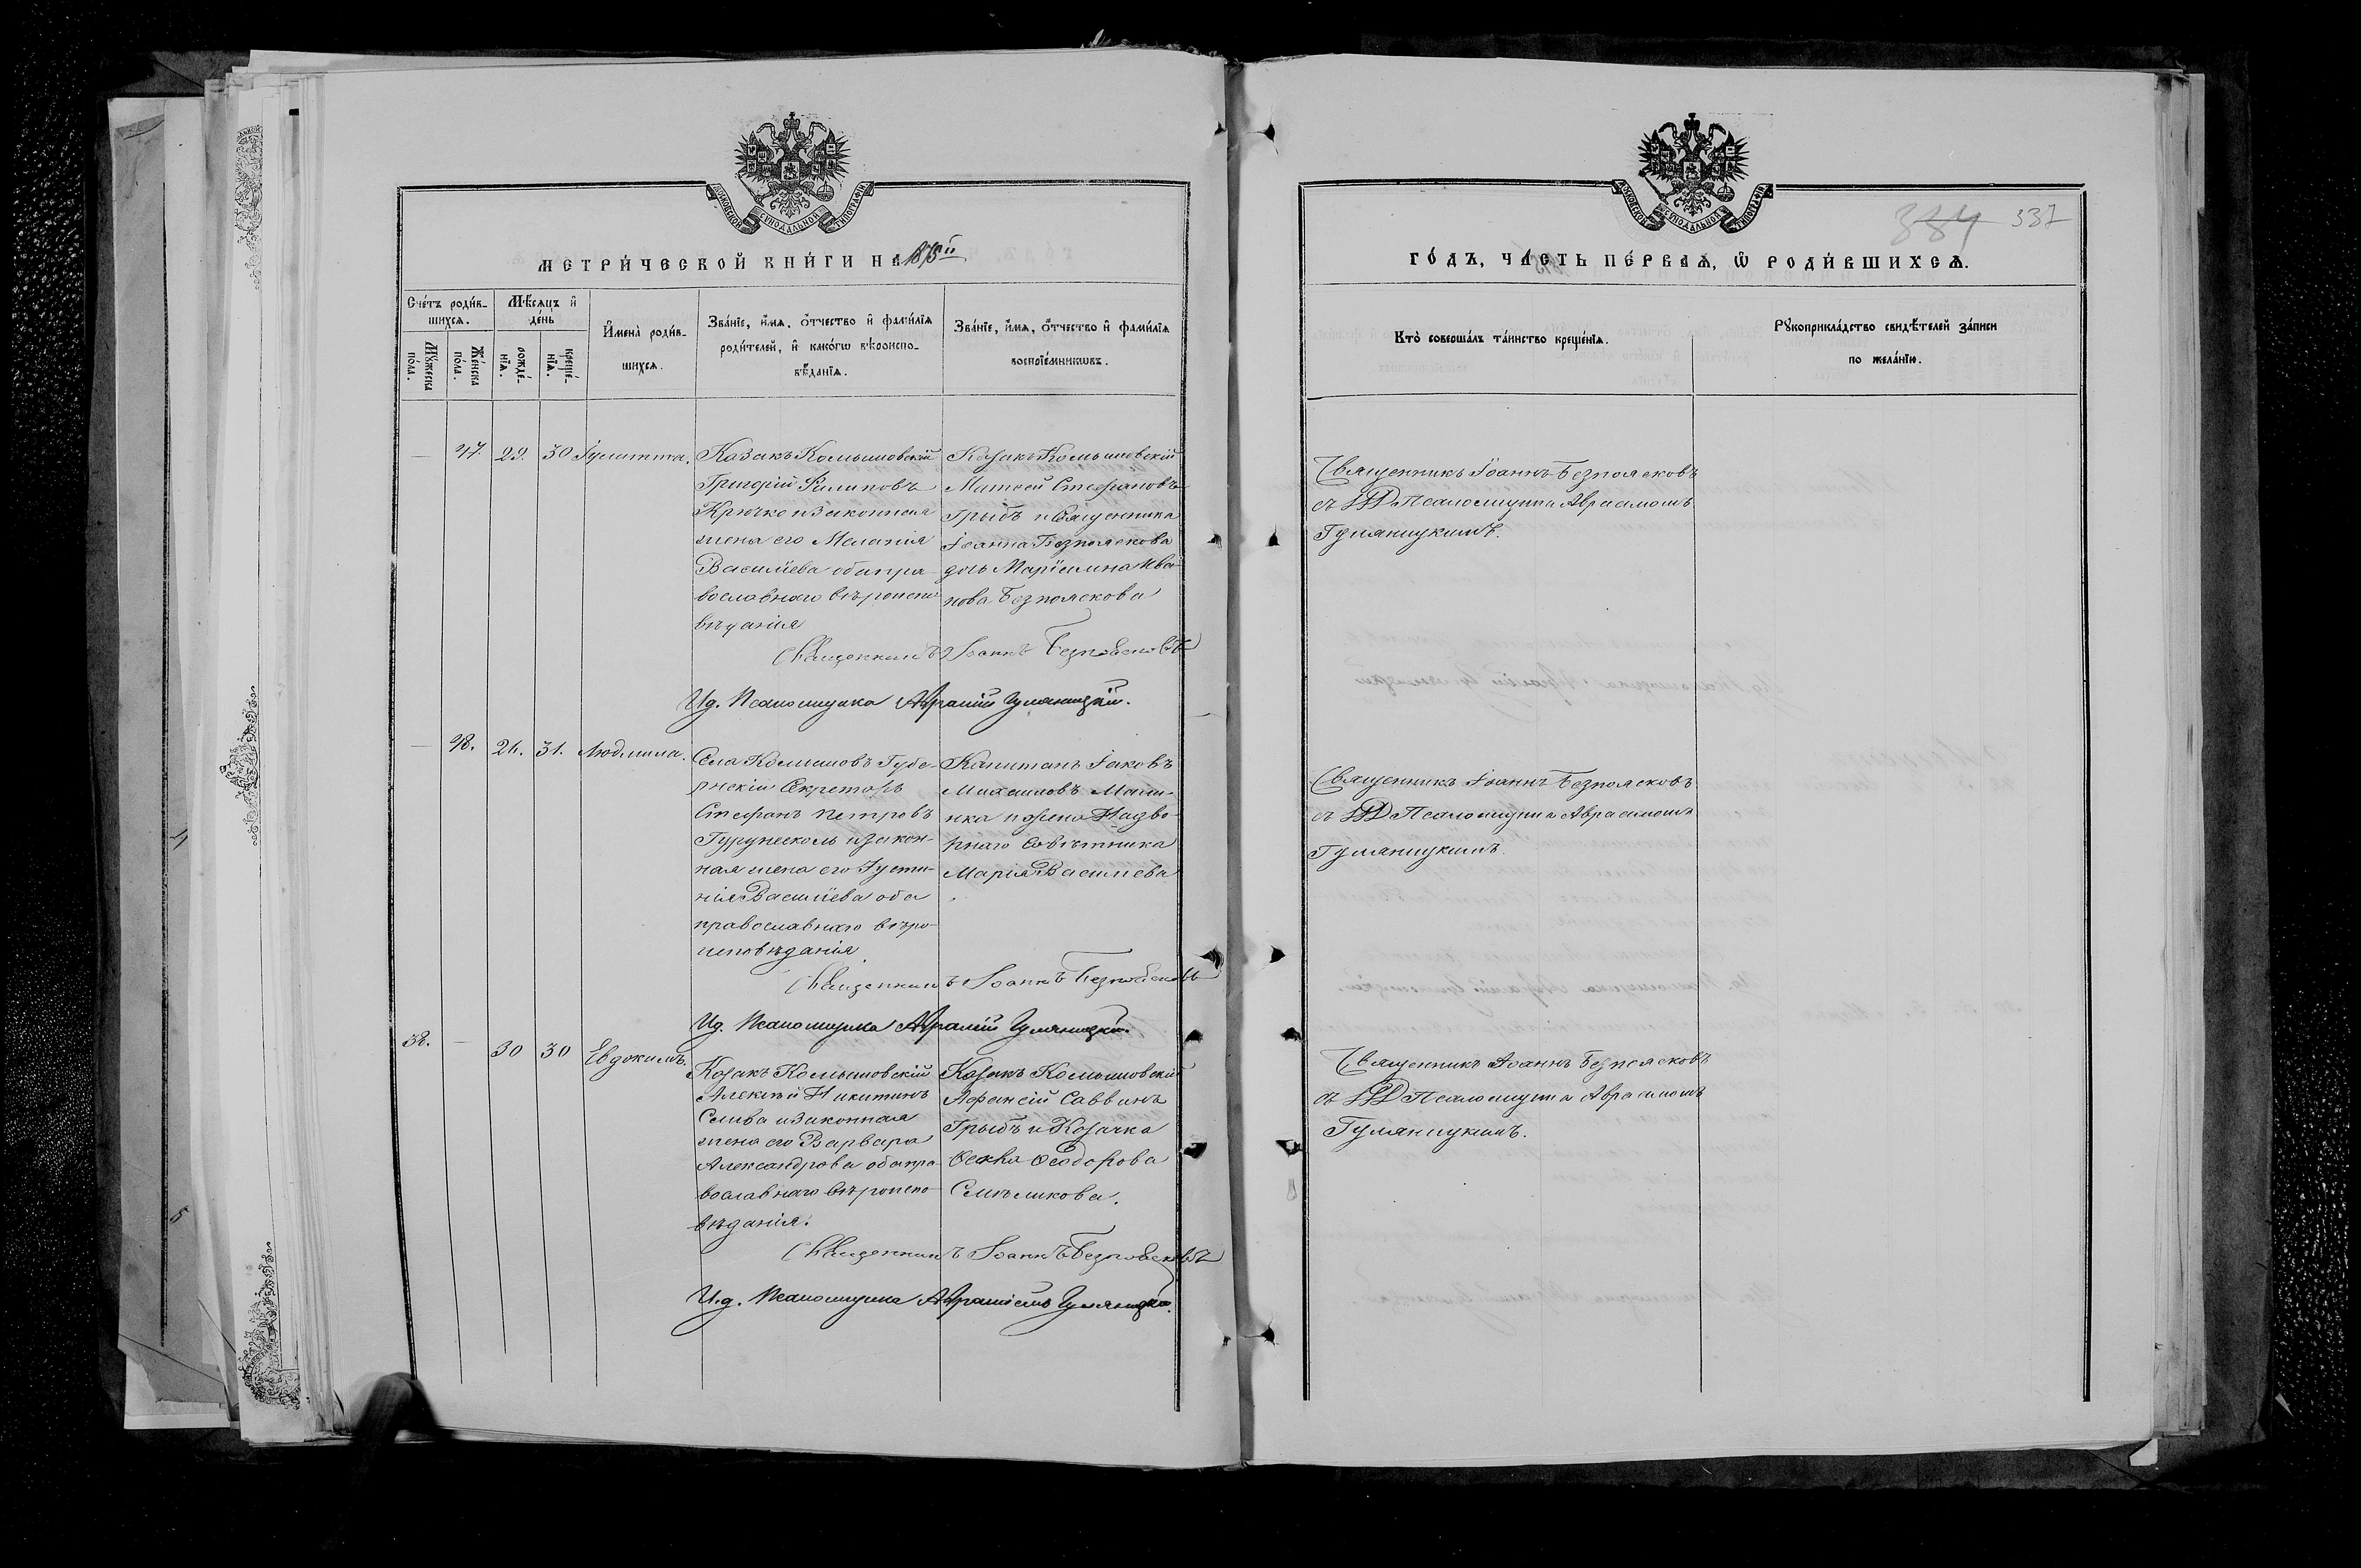 МОСКОВСКОЙ СѴНОДАЛЬНОЙ ТИПОГРАФІИ
МЕТРИ́ЧЕСКОЙ КНИ́ГИ НА 1875й
Сче́тъ роди́в-
шихсѧ.
Мѣ́сѧцъ и҆
де́нь
Мꙋ́жеска
по́ла.
Же́нска
по́ла.
рожде́-
нїѧ.
креще́-
нїѧ.
И҆мена̀ роди́в-
шихсѧ.
Зва́нїе, и҆́мѧ, ѻ҆́тчество и҆ фами́лїѧ
роди́телей, и҆ како́гѡ вѣроиспо-
вѣ́данїѧ.
Зва́нїе, и҆́мѧ, ѻ҆́тчество и҆ фами́лїѧ
воспрїе́мникѡвъ.
— 47. 29. 30 Іулитта.
Казакъ Комышовскій
Григорій Филиповъ
Крючко и законная
жена его Меланія
Василіева оба пра-
вославнаго вѣроиспо-
вѣданія
Козакъ Комышовскій
Матѳей Стефановъ
Грыбъ и Священника
Іоанна Безпояскова
дочь Маріамна Ива-
нова Безпояскова
Священникъ Іоаннъ Безпоясковъ
И.д. Псаломщика Аврамій Гуляницкій.
— 48. 26. 31. Людмила.
Села Комышовъ Губе-
рнскій Секретарь
Стефанъ Петровъ
и закон-
ная жена его Іусти-
нія Василіева оба
православнаго вѣро-
исповѣданія.
Капитанъ Іаковъ
Михаиловъ
и жена Надво-
рнаго Совѣтника
Марія Василіева
Священникъ Іоаннъ Безпоясковъ
И.д. Псаломщика Аврамій Гуляницкій.
38. — 30 30 Евдокимъ.
Козакъ Комышовскій
Алексѣй Никитинъ
Слива и законная
жена его Варвара
Александрова оба пра-
вославнаго вѣроиспо-
вѣданія.
Козакъ Комышовскій
Аѳанасій Саввинъ
Грыбъ и Козачка
Ѳекла Ѳеодорова
Священникъ Іоаннъ Безпоясковъ
И.д. Псаломщика Гуляницкій.
МОСКОВСКОЙ СѴНОДАЛЬНОЙ ТИПОГРАФІИ
384 337
ГО́ДЪ, ЧА́СТЬ ПЕ́РВАѦ, Ѡ҆ РОДИ́ВШИХСѦ.
Кто̀ соверша́лъ та́инство креще́нїѧ.
Рꙋкоприкла́дство свидѣ́телей за́писи
по жела́нїю.
Священникъ Іоаннъ Безпоясковъ
съ И.Д. Псаломщика Авраамомъ
Гуляницкимъ.
Священникъ Іоаннъ Безпоясковъ
съ И.Д. Псаломщика Авраамомъ
Гуляницкимъ.
Священникъ Іоаннъ Безпоясковъ
съ И.Д. Псаломщика Авраамомъ
Гуляницкимъ.